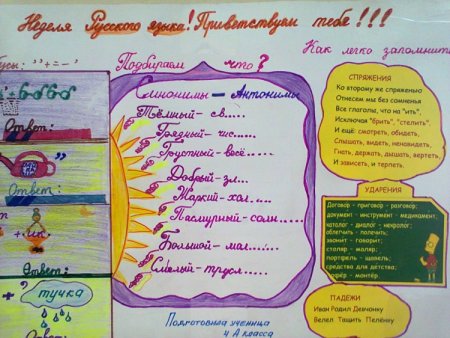 Неделя Русского языка! Приветствуем тебе!!!
Подбираем что?
Как легко запомнить
Синонимы - Антонимы
Тёмный - св.....
Грядный - чис.....
Грустный - весё.....
Добрый - зл...
Жаркий - хол.....
Пасмурный - солн......
Большой - мал.....
Смелый - трусл.....
Подготовила ученица
4 А класса
"+=-"
Ответ:
"
Ответ:
+ ик.
Ответ:
+' тучка
СПРЯЖЕНИЯ
Ко второму же спряженью
Отнесем мы без сомненья
Все глаголы, что на "ить",
Исключая "брить", "стелить",
И ещё: смотреть, обидеть,
Слышать, видеть, ненавидеть,
Гнать, держать, дышать, вертеть,
И зависеть, и терпеть.
УДАРЕНИЯ
Договор - приговор - разговор;
документ - инструмент - медикамент;
каталог - диалог - некролог;
облегчить - полечить;
звонит - говорит;
столяр - маляр;
портфель - щавель;
средства для детства;
- монтёр.
ПАДЕЖИ
Иван Родил Девчонку
Велел Тащить Пелёнку